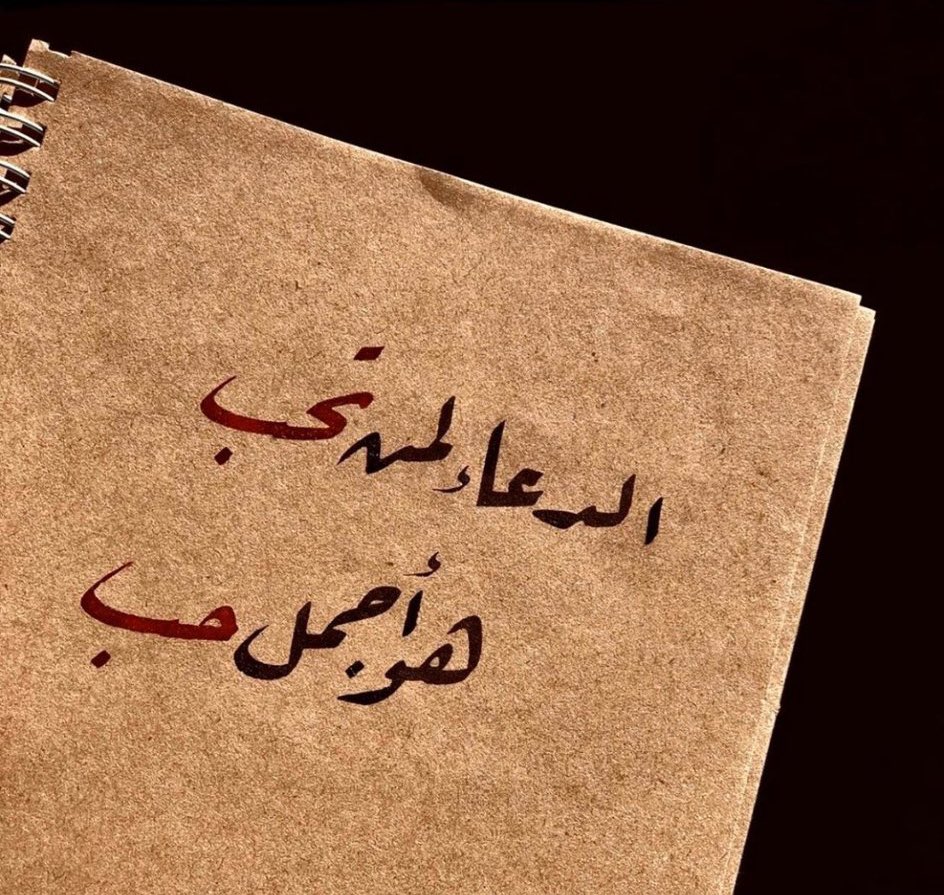 الدعاء لمن تحب
هو أجمل حب